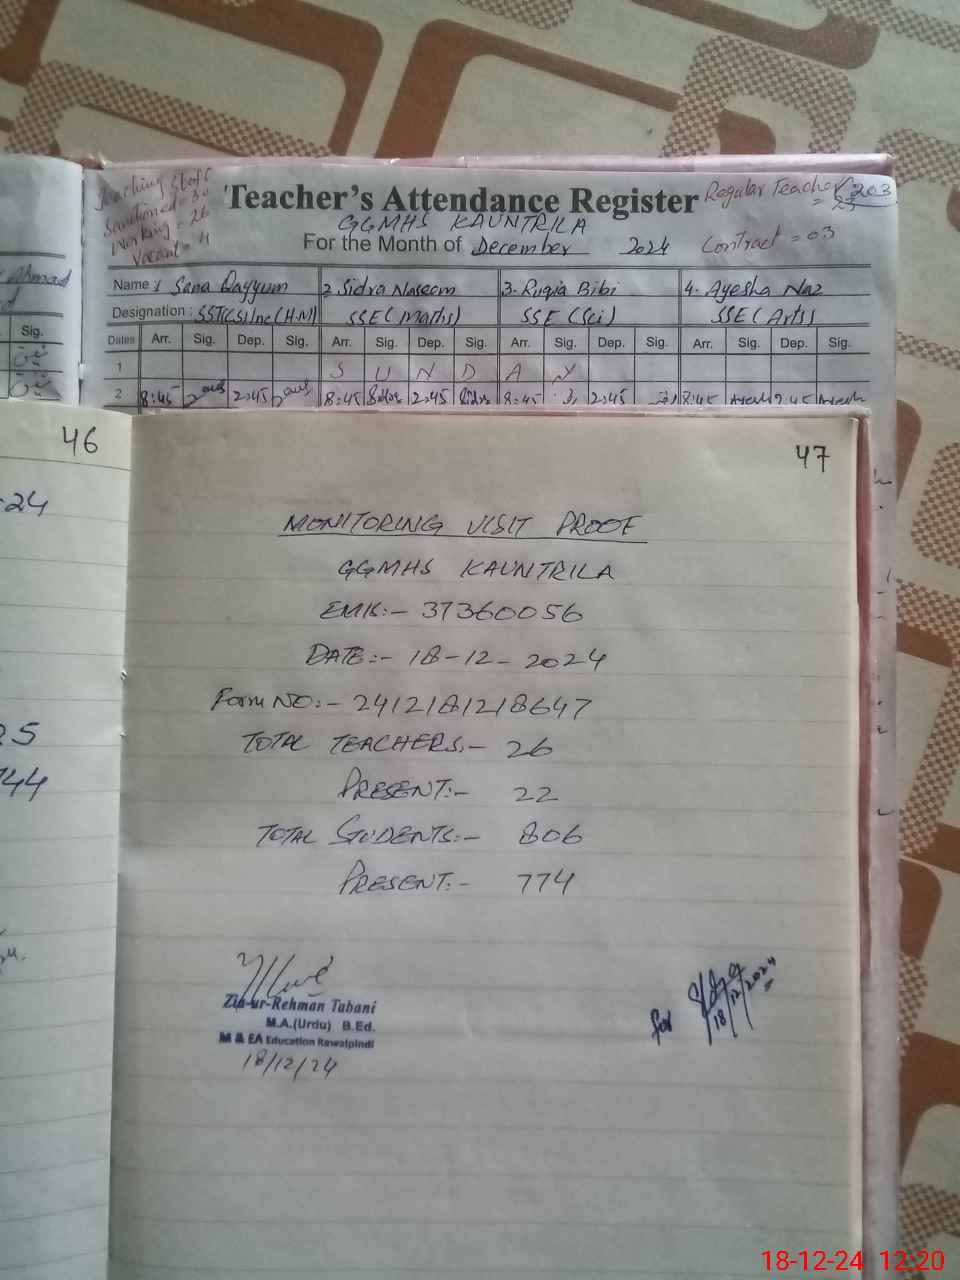 Teaching Staff
Sanctioned = 30
Working = 26
Vacant = 4
Teacher's Attendance Register
GGMHS KAUNTRILA
For the Month of December 2024
Regular Teacher = 23
Contract = 03
Name : 1 Sana Qayyum 2. Sidra Naseem 3. Ruqia Bibi 4. Ayesha Naz
Designation : SST(CS)Inc(H.M) SSE (Maths) SSE (Sci) SSE (Arts)
Dates Arr. Sig. Dep. Sig. Arr. Sig. Dep. Sig. Arr. Sig. Dep. Sig. Arr. Sig. Dep. Sig.
1 S U N D A Y
2 8:45 2:45 8:45 2:45 8:45 2:45 8:45 2:45
Ahmad
Sig.
46
-24
25
744
47
MONITORING VISIT PROOF
GGMHS KAUNTRILA
EMIS:- 37360056
DATE:- 18-12-2024
Form NO:- 2412181218647
TOTAL TEACHERS:- 26
PRESENT:- 22
TOTAL STUDENTS:- 806
PRESENT:- 774
Zia-ur-Rehman Tabani
M.A.(Urdu) B.Ed.
M & EA Education Rawalpindi
18/12/24
for
18/12/2024
18-12-24 12:20